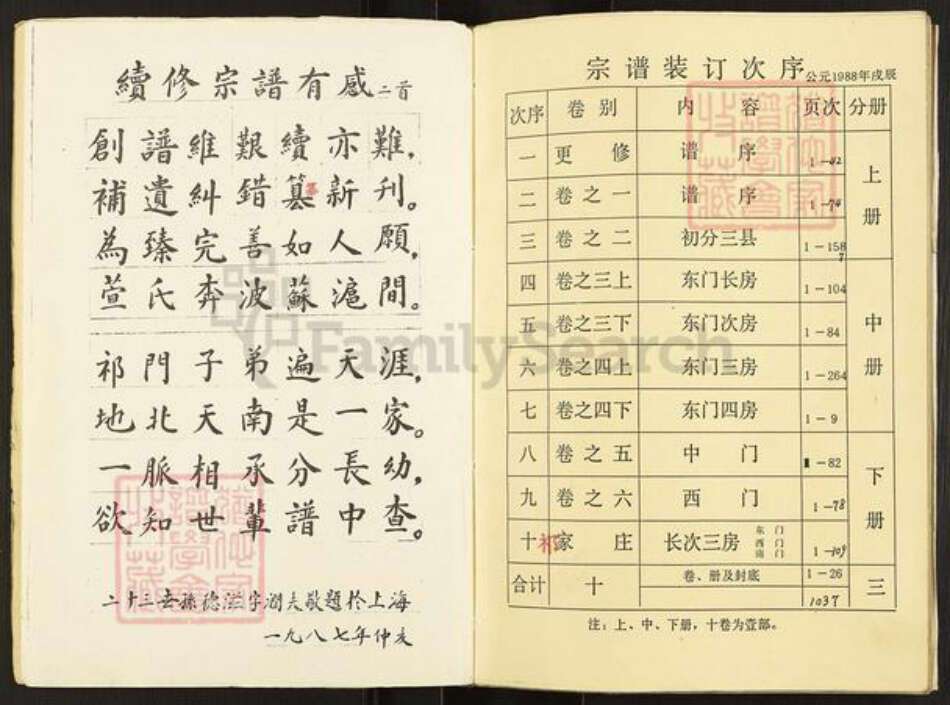 續修宗譜有感 二首
創譜維艱續亦難，
補遺糾錯纂新刊。
為臻完善如人願，
萱氏奔波蘇滬間。
祁門子弟遍天涯，
地北天南是一家。
一脈相承分長幼，
欲知世輩譜中查。
二十三世孫德滋字潤夫敬題於上海
一九八七年仲亥
宗谱装订次序 公元1988年戌辰
次序 卷别 内容 页次 分册
一 更修 谱序 1-42 上册
二 卷之一 谱序 1-74
三 卷之二 初分三县 1-158
四 卷之三上 东门长房 1-104 中册
五 卷之三下 东门次房 1-84
六 卷之四上 东门三房 1-264
七 卷之四下 东门四房 1-9
八 卷之五 中门 1-82 下册
九 卷之六 西门 1-78
十 祁家庄 长次三房 东门 西门 南门 1-109
合计 十 卷、册及封底 1-26 三
1037
注：上、中、下册，十卷为壹部。
FamilySearch